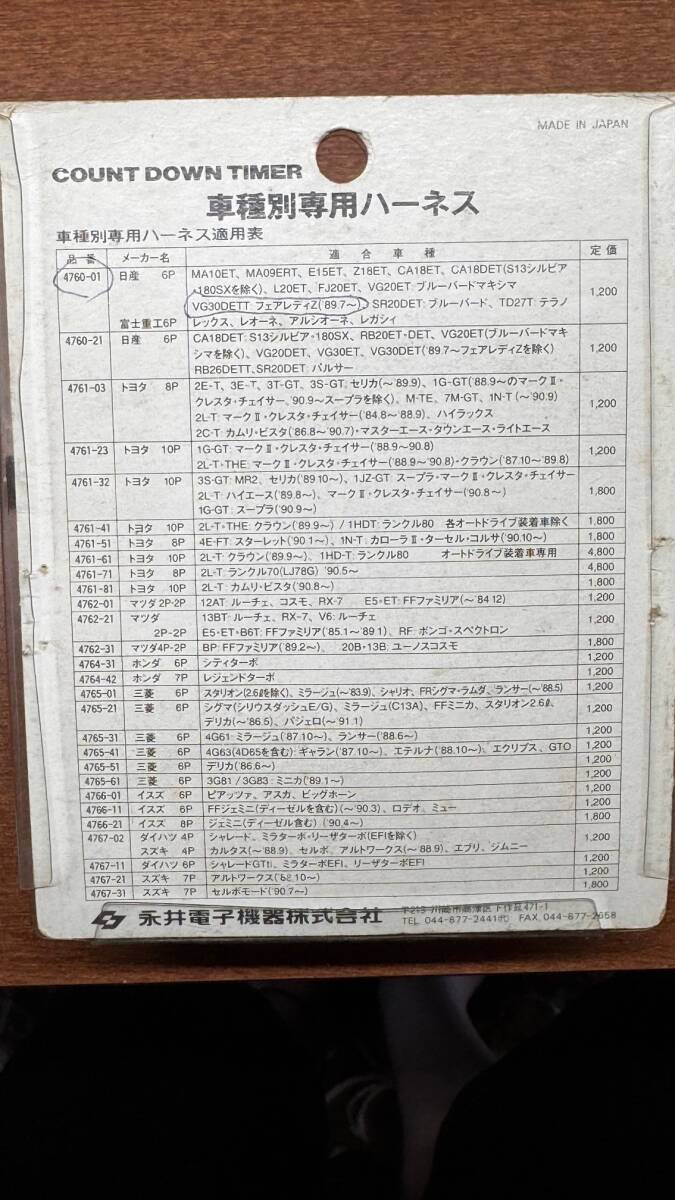 MADE IN JAPAN
COUNT DOWN TIMER
車種別専用ハーネス
車種別専用ハーネス適用表
品番 メーカー名 適合車種 定価
4760-01 日産 6P MA10ET、MA09ERT、E15ET、Z18ET、CA18ET、CA18DET(S13シルビア
・180SXを除く)、L20ET、FJ20ET、VG20ET:ブルーバードマキシマ 1,200
VG30DETT フェアレディZ('89.7〜)、SR20DET:ブルーバード、TD27T:テラノ
富士重工6P レックス、レオーネ、アルシオーネ、レガシィ
4760-21 日産 6P CA18DET:S13シルビア・180SX、RB20ET・DET、VG20ET(ブルーバードマキ
シマを除く)、VG20DET、VG30ET、VG30DET('89.7〜フェアレディZを除く) 1,200
RB26DETT,SR20DET:パルサー
4761-03 トヨタ 8P 2E-T、3E-T、3T-GT、3S-GT:セリカ(〜'89.9)、1G-GT('88.9〜のマークⅡ・
クレスタ・チェイサー、'90.9〜スープラを除く)、M-TE、7M-GT、1N-T(〜'90.9) 1,200
2L-T:マークⅡ・クレスタ・チェイサー('84.8〜'88.9)、ハイラックス
2C-T:カムリ・ビスタ('86.8〜'90.7)・マスターエース・タウンエース・ライトエース
4761-23 トヨタ 10P 1G-GT:マークⅡ・クレスタ・チェイサー('88.9〜90.8) 1,200
2L-T・THE:マークⅡ・クレスタ・チェイサー('88.9〜'90.8)・クラウン('87.10〜'89.8)
4761-32 トヨタ 10P 3S-GT:MR2、セリカ('89.10〜)、1JZ-GT:スープラ・マークⅡ・クレスタ・チェイサー
2L-T:ハイエース('89.8〜)、マークⅡ・クレスタ・チェイサー('90.8〜) 1,800
1G-GT:スープラ('90.9〜)
4761-41 トヨタ 10P 2L-T・THE:クラウン('89.9〜)/1HDT:ランクル80 各オートドライブ装着車除く 1,800
4761-51 トヨタ 8P 4E-FT:スターレット('90.1〜)、1N-T:カローラⅡ・ターセル・コルサ('90.10〜) 1,800
4761-61 トヨタ 10P 2L-T:クラウン('89.9〜)、1HD-T:ランクル80 オートドライブ装着車専用 4,800
4761-71 トヨタ 8P 2L-T:ランクル70(LJ78G) '90.5〜 4,800
4761-81 トヨタ 10P 2L-T:カムリ・ビスタ('90.8〜) 1,800
4762-01 マツダ 2P-2P 12AT:ルーチェ、コスモ、RX-7 E5・ET:FFファミリア(〜'84 12) 1,200
4762-21 マツダ 13BT:ルーチェ、RX-7、V6:ルーチェ 1,200
2P-2P E5・ET・B6T:FFファミリア('85.1〜'89.1)、RF:ボンゴ・スペクトロン
4762-31 マツダ4P-2P BP:FFファミリア('89.2〜)、 20B・13B:ユーノスコスモ 1,800
4764-31 ホンダ 6P シティターボ 1,200
4764-42 ホンダ 7P レジェンドターボ 1,200
4765-01 三菱 6P スタリオン(2.6ℓを除く)、ミラージュ(〜'83.9)、シャリオ、FRシグマ・ラムダ、ランサー(〜'88.5) 1,200
4765-21 三菱 6P シグマ(シリウスダッシュE/G)、ミラージュ(C13A)、FFミニカ、スタリオン2.6ℓ、 1,200
デリカ(〜'86.5)、パジェロ(〜'91.1)
4765-31 三菱 6P 4G61:ミラージュ('87.10〜)、ランサー('88.6〜) 1,200
4765-41 三菱 6P 4G63(4D65を含む):ギャラン('87.10〜)、エテルナ('88.10〜)、エクリプス、GTO 1,200
4765-51 三菱 6P デリカ('86.6〜) 1,200
4765-61 三菱 6P 3G81/3G83:ミニカ('89.1〜) 1,200
4766-01 イスズ 6P ピアッツァ、アスカ、ビッグホーン 1,200
4766-11 イスズ 6P FFジェミニ(ディーゼルを含む)(〜'90.3)、ロデオ、ミュー 1,200
4766-21 イスズ 8P ジェミニ(ディーゼル含む)('90.4〜) 1,800
4767-02 ダイハツ 4P シャレード、ミラターボ・リーザターボ(EFIを除く) 1,200
スズキ 4P カルタス(〜'88.9)、セルボ、アルトワークス(〜'88.9)、エブリ、ジムニー
4767-11 ダイハツ 6P シャレードGTti、ミラターボEFI、リーザターボEFI 1,200
4767-21 スズキ 7P アルトワークス('88.10〜) 1,200
4767-31 スズキ 7P セルボモード('90.7〜) 1,800
永井電子機器株式会社 〒213 川崎市高津区下作延471-1
TEL 044-877-2441㈹ FAX 044-877-2658